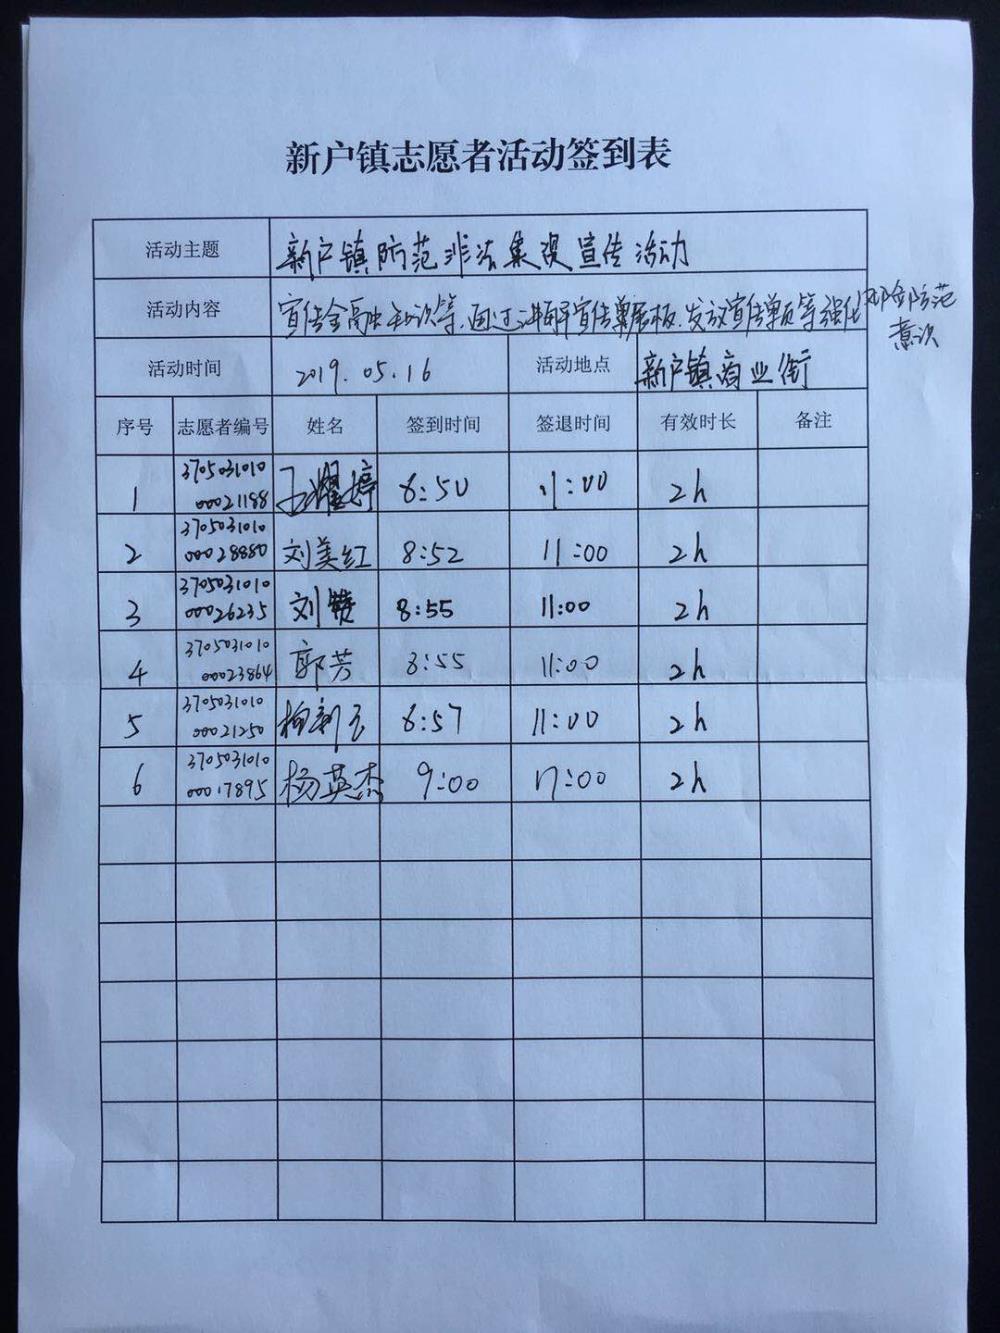 新户镇志愿者活动签到表
活动主题 新户镇防范非法集资宣传活动
活动内容 宣传金融知识等,通过讲解宣传单展板、发放宣传单页等强化 防范
意识
活动时间 2019.05.16 活动地点 新户镇商业街
序号 志愿者编号 姓名 签到时间 签退时间 有效时长 备注
1 3705031010
00021188 王耀婷 8:50 11:00 2h
2 3705031010
00028880 刘美红 8:52 11:00 2h
3 3705031010
00026235 刘赞 8:55 11:00 2h
4 3705031010
00023864 郭芳 8:55 11:00 2h
5 3705031010
00021250 柳新玉 8:57 11:00 2h
6 3705031010
00017895 杨英杰 9:00 11:00 2h